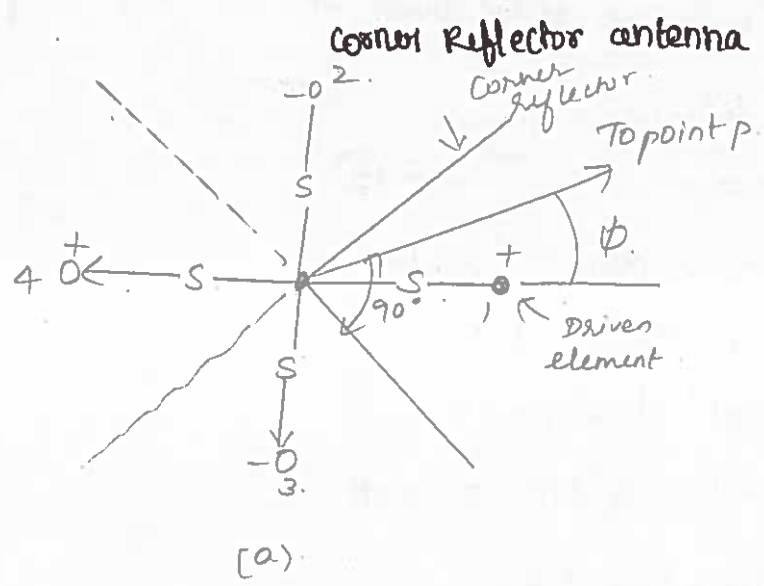 Corner Reflector antenna
-O 2.
Corner
reflector.
To point p.
S
+
4 O
S
S
+
φ.
90°
1
Driven
element
S
-O
3.
(a)